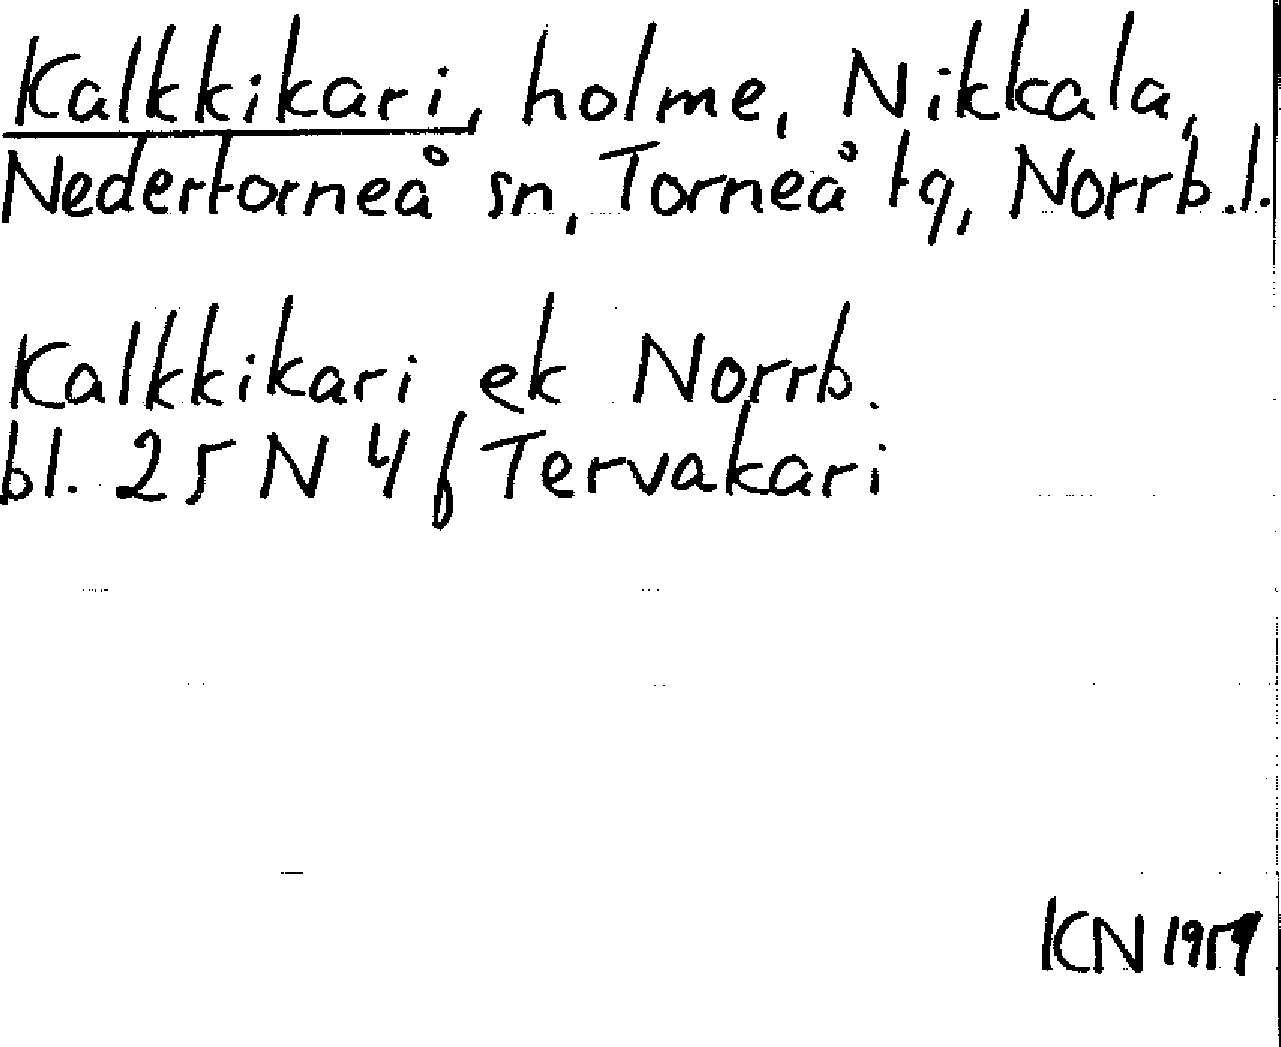 Kalkkikari, holme, Nikkala,
Nedertorneå sn, Torneå tg, Norrb.l.
Kalkkikari ek Norrb.
bl. 25 N 4 f Tervakari
KN 1959